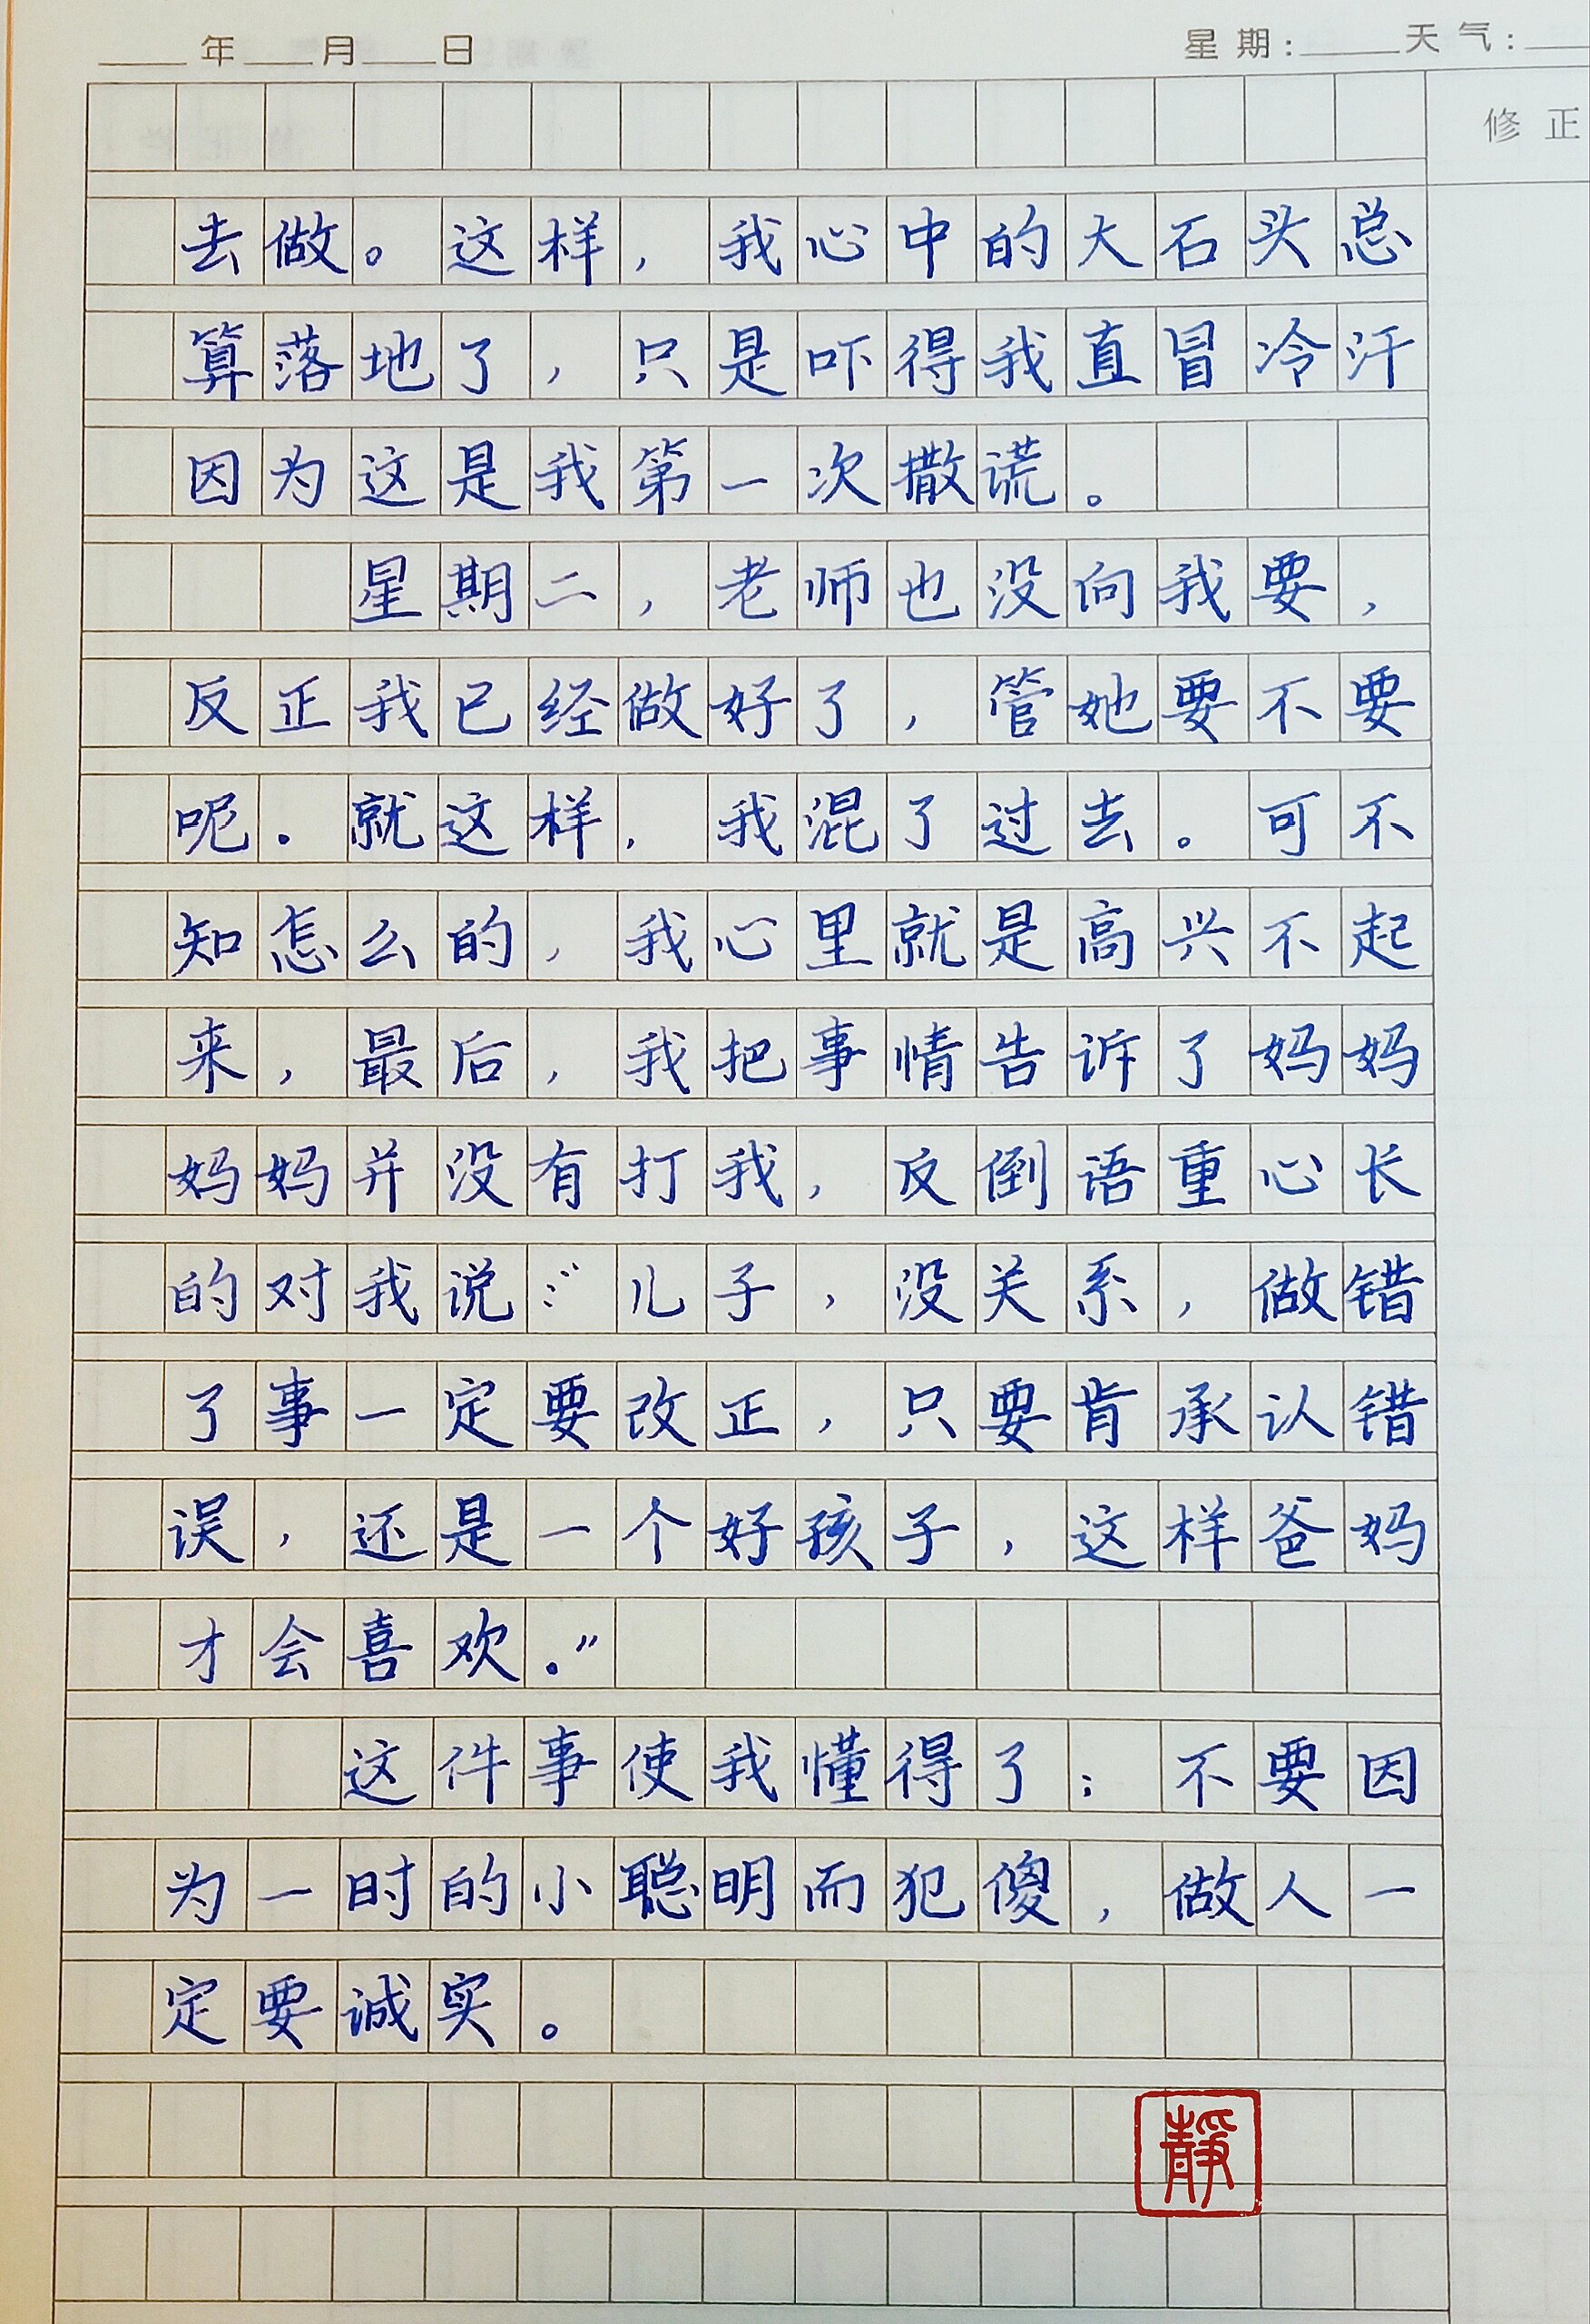 ____年____月____日 星期:_____天气:____
修正
去做。这样，我心中的大石头总
算落地了，只是吓得我直冒冷汗
因为这是我第一次撒谎。
星期二，老师也没向我要，
反正我已经做好了，管她要不要
呢。就这样，我混了过去。可不
知怎么的，我心里就是高兴不起
来，最后，我把事情告诉了妈妈
妈妈并没有打我，反倒语重心长
的对我说：“儿子，没关系，做错
了事一定要改正，只要肯承认错
误，还是一个好孩子，这样爸妈
才会喜欢。”
这件事使我懂得了；不要因
为一时的小聪明而犯傻，做人一
定要诚实。
靜